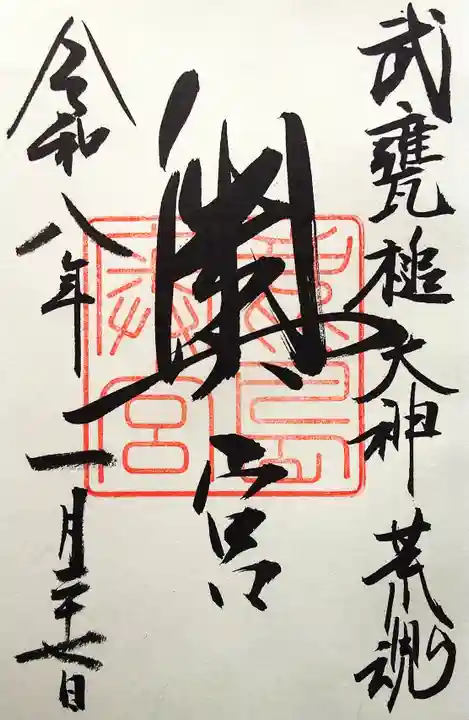 武甕槌大神荒魂
奥宮
鹿島神宮
令和八年一月二十七日